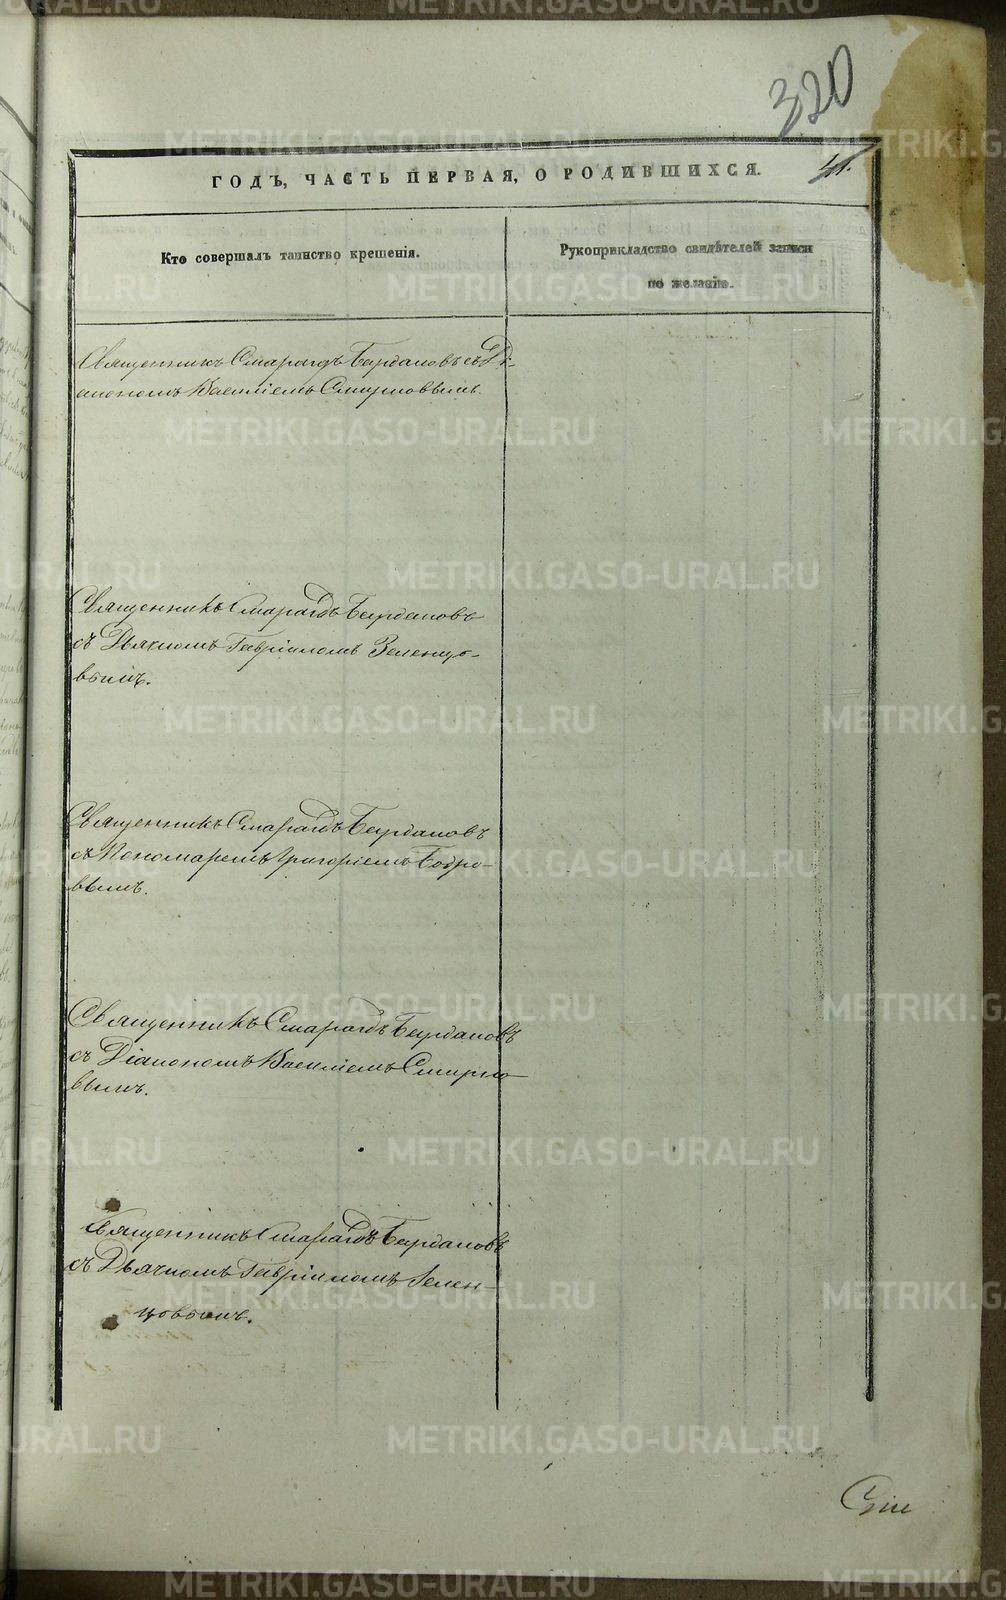 320
ГОДЪ, ЧАСТЬ ПЕРВАЯ, О РОДИВШИХСЯ.
Кто совершалъ таинство крещенія.
Рукоприкладство свидѣтелей записи
по желанію.
Священникъ Смарагдъ Бурдаковъ съ Ді-
акономъ Василіемъ Смирновымъ.
Священникъ Смарагдъ Бурдаковъ
съ Дьячкомъ Гавріиломъ Зеленцо-
вымъ.
Священникъ Смарагдъ Бурдаковъ
съ Пономаремъ Григоріемъ Бобро-
вымъ.
Священникъ Смарагдъ Бурдаковъ
съ Діакономъ Василіемъ Смирно-
вымъ.
Священникъ Смарагдъ Бурдаковъ
съ Дьячкомъ Гавріиломъ Зелен-
цовымъ.
METRIKI.GASO-URAL.RU